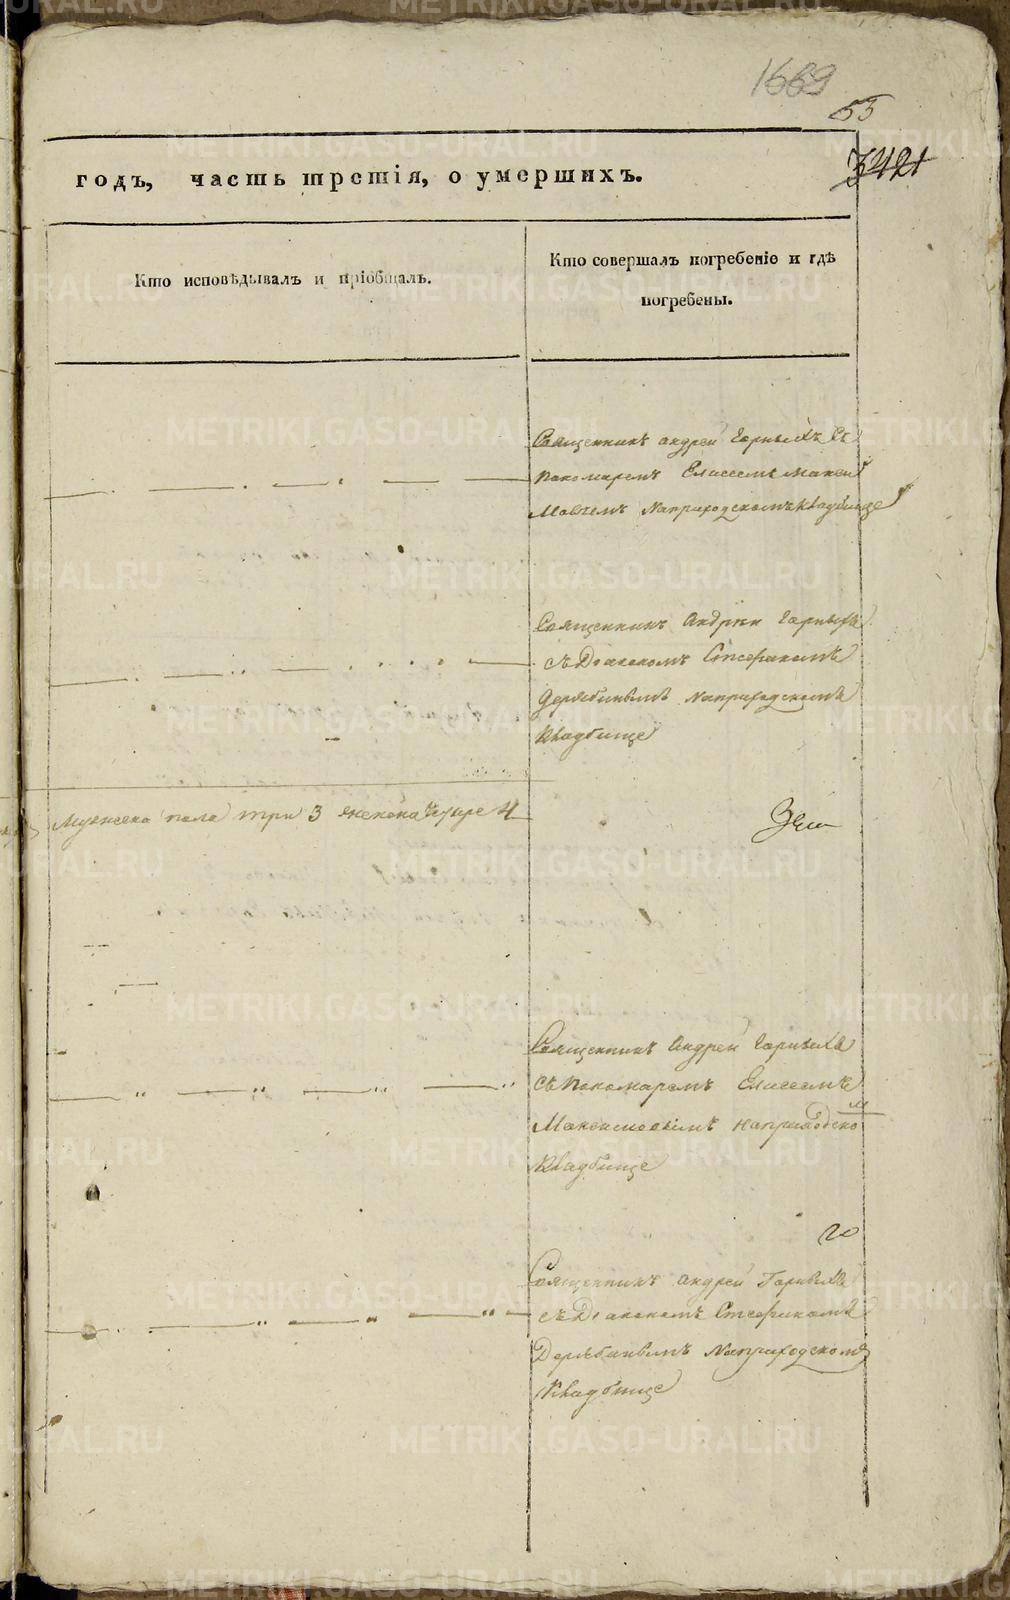 1669
55
3421
годъ, часть третія, о умершихъ.
Кто исповѣдывалъ и пріобщалъ.
Кто совершалъ погребеніе и гдѣ
погребены.
Священникъ андрей Горныхъ Съ
пономаремъ Елисеемъ Макси
мовымъ Наприходскомъ кладбище
Священникъ Андрей Горныхъ
съ Діакономъ Стефаномъ
Дерябинымъ Наприходскомъ
Кладбище
Мужеска пола три 3 женска четыре 4
Священникъ Андрей Горныхъ
съ Пономаремъ Елисеемъ
Максимовымъ Наприходском
Кладбище
Священникъ андрей Горныхъ
съ Діакономъ Стефаномъ
Дерябинымъ Наприходскомъ
Кладбище
METRIKI.GASO-URAL.RU